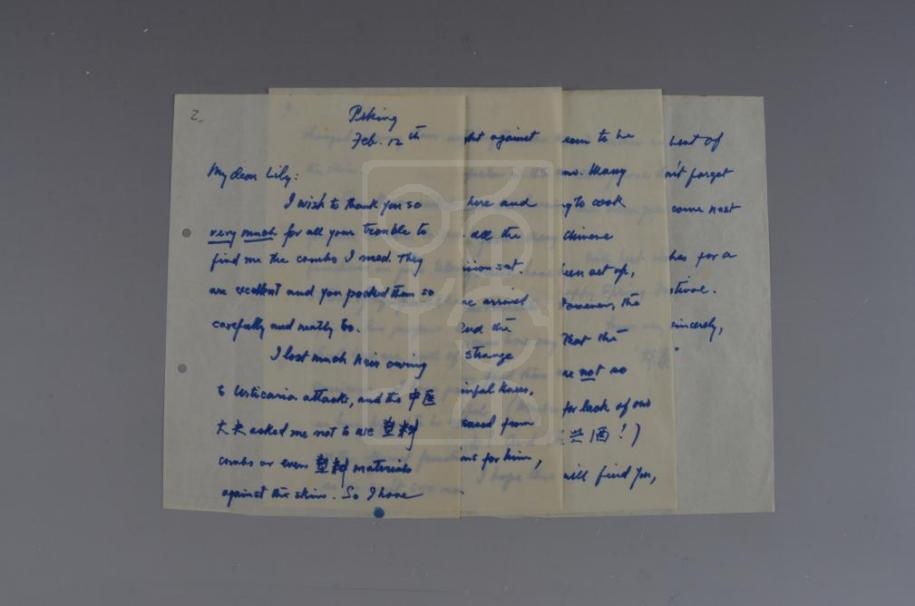 2.
Peking
Feb. 12th
My dear Lily:
I wish to thank you so
very much for all your trouble to
find me the combs I need. They
are excellent and you packed them so
carefully and neatly too.
I lost much hair owing
to Urticaria attacks, and the 中医
大夫 asked me not to use 塑料
combs or even 塑料 materials
against the skin. So I have
ht against
here and
all the
sion set.
arrived
and the
strange
inful knees,
for him,
seem to be
ms. Many
ng to cook
Chinese
been set up,
However, the
that the
are not so
for lack of our
兴酒!)
will find you,
best of
n't forget
come next
hes for a
stival.
sincerely,